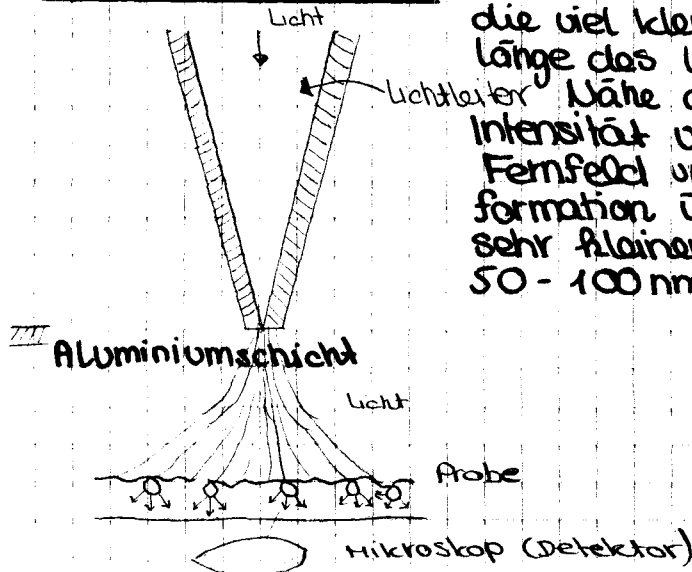 Licht
die viel
länge des
Lichtleiter Nähe
Intensität
Fernfeld
formation
sehr kleine
50 - 100 nm
Aluminiumschicht
Licht
Probe
Mikroskop (Detektor)